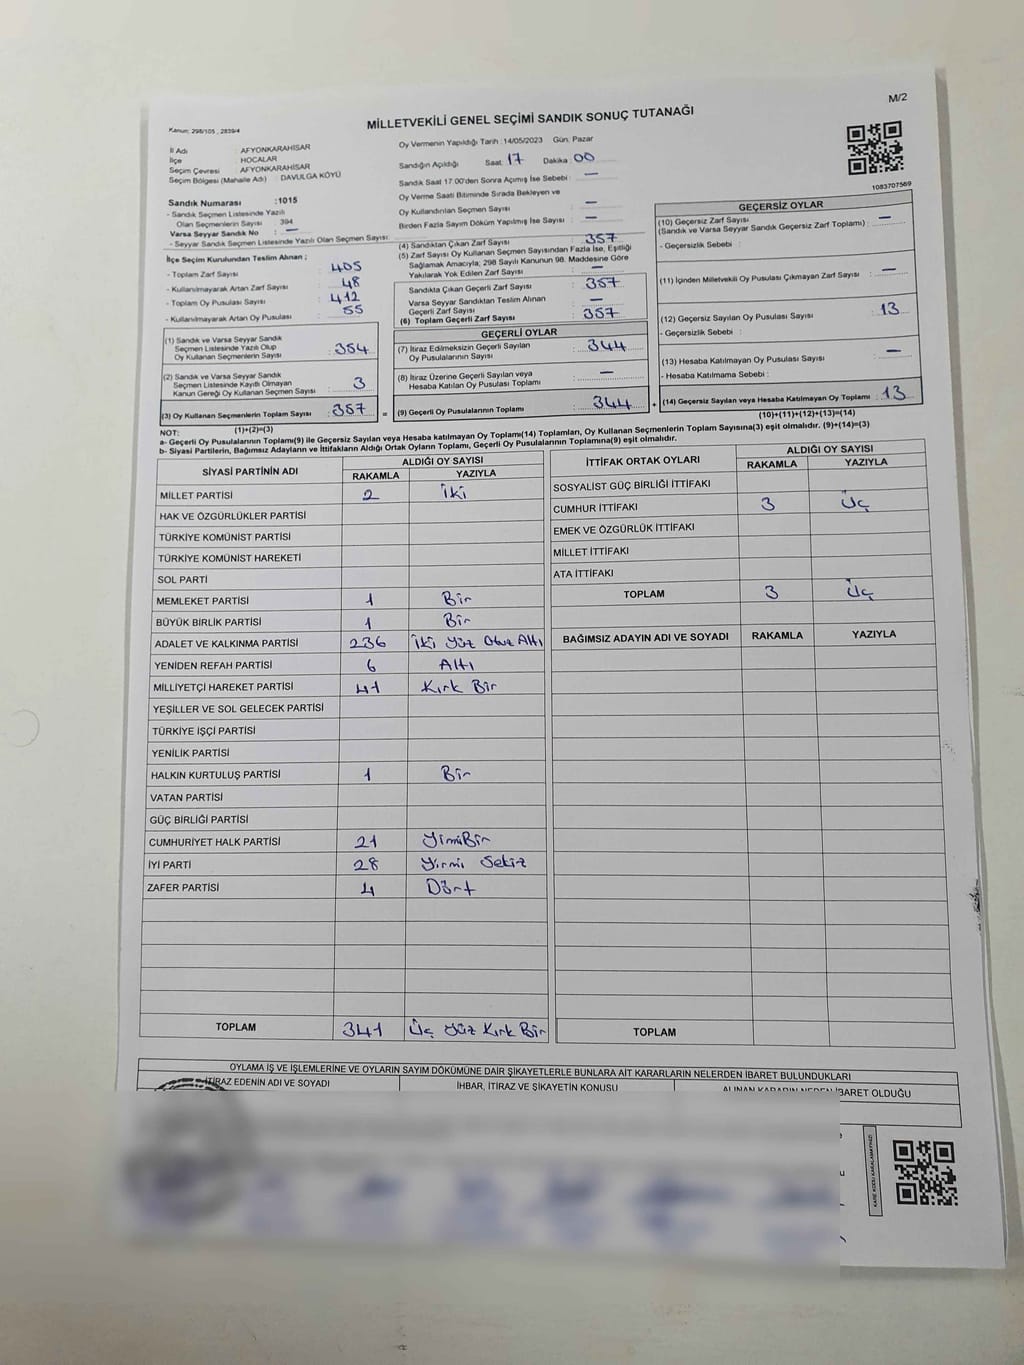 M/2
MİLLETVEKİLİ GENEL SEÇİMİ SANDIK SONUÇ TUTANAĞI
Kanun: 298/105 , 2839/4
İl Adı : AFYONKARAHİSAR
İlçe : HOCALAR
Seçim Çevresi : AFYONKARAHİSAR
Seçim Bölgesi (Mahalle Adı) : DAVULGA KÖYÜ
Sandık Numarası :1015
- Sandık Seçmen Listesinde Yazılı
Olan Seçmenlerin Sayısı 394
Varsa Seyyar Sandık No : —
- Seyyar Sandık Seçmen Listesinde Yazılı Olan Seçmen Sayısı:
İlçe Seçim Kurulundan Teslim Alınan ;
- Toplam Zarf Sayısı : 405
- Kullanılmayarak Artan Zarf Sayısı : 48
- Toplam Oy Pusulası Sayısı : 412
- Kullanılmayarak Artan Oy Pusulası : 55
(1) Sandık ve Varsa Seyyar Sandık
Seçmen Listesinde Yazılı Olup
Oy Kullanan Seçmenlerin Sayısı : 354
(2) Sandık ve Varsa Seyyar Sandık
Seçmen Listesinde Kayıtlı Olmayan
Kanun Gereği Oy Kullanan Seçmen Sayısı : 3
(3) Oy Kullanan Seçmenlerin Toplam Sayısı : 357 =
(1)+(2)=(3)
Oy Vermenin Yapıldığı Tarih :14/05/2023 Gün: Pazar
Sandığın Açıldığı Saat: 17 Dakika: 00
Sandık Saat 17.00'den Sonra Açımış İse Sebebi : —
Oy Verme Saati Bitiminde Sırada Bekleyen ve
Oy Kullandırılan Seçmen Sayısı : —
Birden Fazla Sayım Döküm Yapılmış İse Sayısı : —
(4) Sandıktan Çıkan Zarf Sayısı : 357
(5) Zarf Sayısı Oy Kullanan Seçmen Sayısından Fazla İse, Eşitliği
Sağlamak Amacıyla; 298 Sayılı Kanunun 98. Maddesine Göre
Yakılarak Yok Edilen Zarf Sayısı : —
Sandıkta Çıkan Geçerli Zarf Sayısı : 357
Varsa Seyyar Sandıktan Teslim Alınan
Geçerli Zarf Sayısı : —
(6) Toplam Geçerli Zarf Sayısı : 357
GEÇERLİ OYLAR
(7) İtiraz Edilmeksizin Geçerli Sayılan
Oy Pusulalarının Sayısı : 344
(8) İtiraz Üzerine Geçerli Sayılan veya
Hesaba Katılan Oy Pusulası Toplamı : —
(9) Geçerli Oy Pusulalarının Toplamı : 344 +
1083707569
GEÇERSİZ OYLAR
(10) Geçersiz Zarf Sayısı : —
(Sandık ve Varsa Seyyar Sandık Geçersiz Zarf Toplamı)
- Geçersizlik Sebebi :
(11) İçinden Milletvekili Oy Pusulası Çıkmayan Zarf Sayısı : —
(12) Geçersiz Sayılan Oy Pusulası Sayısı : 13
- Geçersizlik Sebebi :
(13) Hesaba Katılmayan Oy Pusulası Sayısı : —
- Hesaba Katılmama Sebebi :
(14) Geçersiz Sayılan veya Hesaba Katılmayan Oy Toplamı : 13
(10)+(11)+(12)+(13)=(14)
NOT:
a- Geçerli Oy Pusulalarının Toplamı(9) ile Geçersiz Sayılan veya Hesaba katılmayan Oy Toplamı(14) Toplamları, Oy Kullanan Seçmenlerin Toplam Sayısına(3) eşit olmalıdır. (9)+(14)=(3)
b- Siyasi Partilerin, Bağımsız Adayların ve İttifakların Aldığı Oyların Toplamı, Geçerli Oy Pusulalarının Toplamına(9) eşit olmalıdır.
SİYASİ PARTİNİN ADI ALDIĞI OY SAYISI
RAKAMLA YAZIYLA
MİLLET PARTİSİ 2 İki
HAK VE ÖZGÜRLÜKLER PARTİSİ
TÜRKİYE KOMÜNİST PARTİSİ
TÜRKİYE KOMÜNİST HAREKETİ
SOL PARTİ
MEMLEKET PARTİSİ 1 Bir
BÜYÜK BİRLİK PARTİSİ 1 Bir
ADALET VE KALKINMA PARTİSİ 236 İki Yüz Otuz Altı
YENİDEN REFAH PARTİSİ 6 Altı
MİLLİYETÇİ HAREKET PARTİSİ 41 Kırk Bir
YEŞİLLER VE SOL GELECEK PARTİSİ
TÜRKİYE İŞÇİ PARTİSİ
YENİLİK PARTİSİ
HALKIN KURTULUŞ PARTİSİ 1 Bir
VATAN PARTİSİ
GÜÇ BİRLİĞİ PARTİSİ
CUMHURİYET HALK PARTİSİ 21 YirmiBir
İYİ PARTİ 28 Yirmi Sekiz
ZAFER PARTİSİ 4 Dört
TOPLAM 341 Üç Yüz Kırk Bir
İTTİFAK ORTAK OYLARI ALDIĞI OY SAYISI
RAKAMLA YAZIYLA
SOSYALIST GÜÇ BİRLİĞİ İTTİFAKI
CUMHUR İTTİFAKI 3 Üç
EMEK VE ÖZGÜRLÜK İTTİFAKI
MİLLET İTTİFAKI
ATA İTTİFAKI
TOPLAM 3 Üç
BAĞIMSIZ ADAYIN ADI VE SOYADI RAKAMLA YAZIYLA
TOPLAM
OYLAMA İŞ VE İŞLEMLERİNE VE OYLARIN SAYIM DÖKÜMÜNE DAİR ŞİKAYETLERLE BUNLARA AİT KARARLARIN NELERDEN İBARET BULUNDUKLARI
İTİRAZ EDENİN ADI VE SOYADI İHBAR, İTİRAZ VE ŞİKAYETİN KONUSU ALINAN KARARIN NEDEN İBARET OLDUĞU
KARE KODU KARALAMAYINIZ!